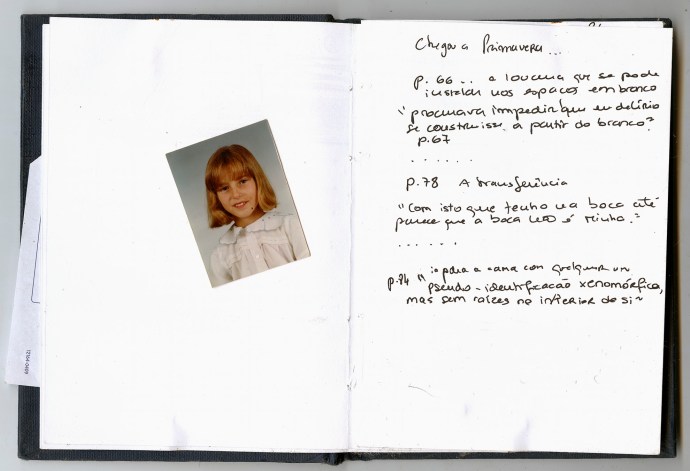 Chegou a Primavera...
p. 66 ... a loucura que se pode
instalar nos espaços em branco
"procurava impedir que um delírio
se construisse a partir do branco"
p.67
. . . . . .
p.78 A transferência
"Com isto que tenho na boca até
parece que a boca não é minha."
. . . . . .
p.84 " ia para a cama com qualquer um
pseudo-identificação xenomórfica,
mas sem raízes no interior de si~